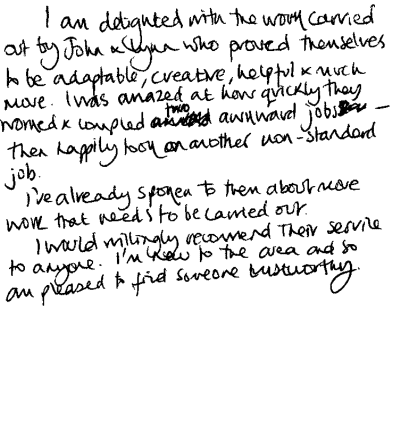 I am delighted with the work carried
out by John & Lynn who proved themselves
to be adaptable, creative, helpful & much
more. I was amazed at how quickly they
worked & coupled two awkward jobs –
then happily took on another non-standard
job.
I've already spoken to them about more
work that needs to be carried out.
I would willingly recomend their service
to anyone. I'm new to the area and so
am pleased to find someone trustworthy.